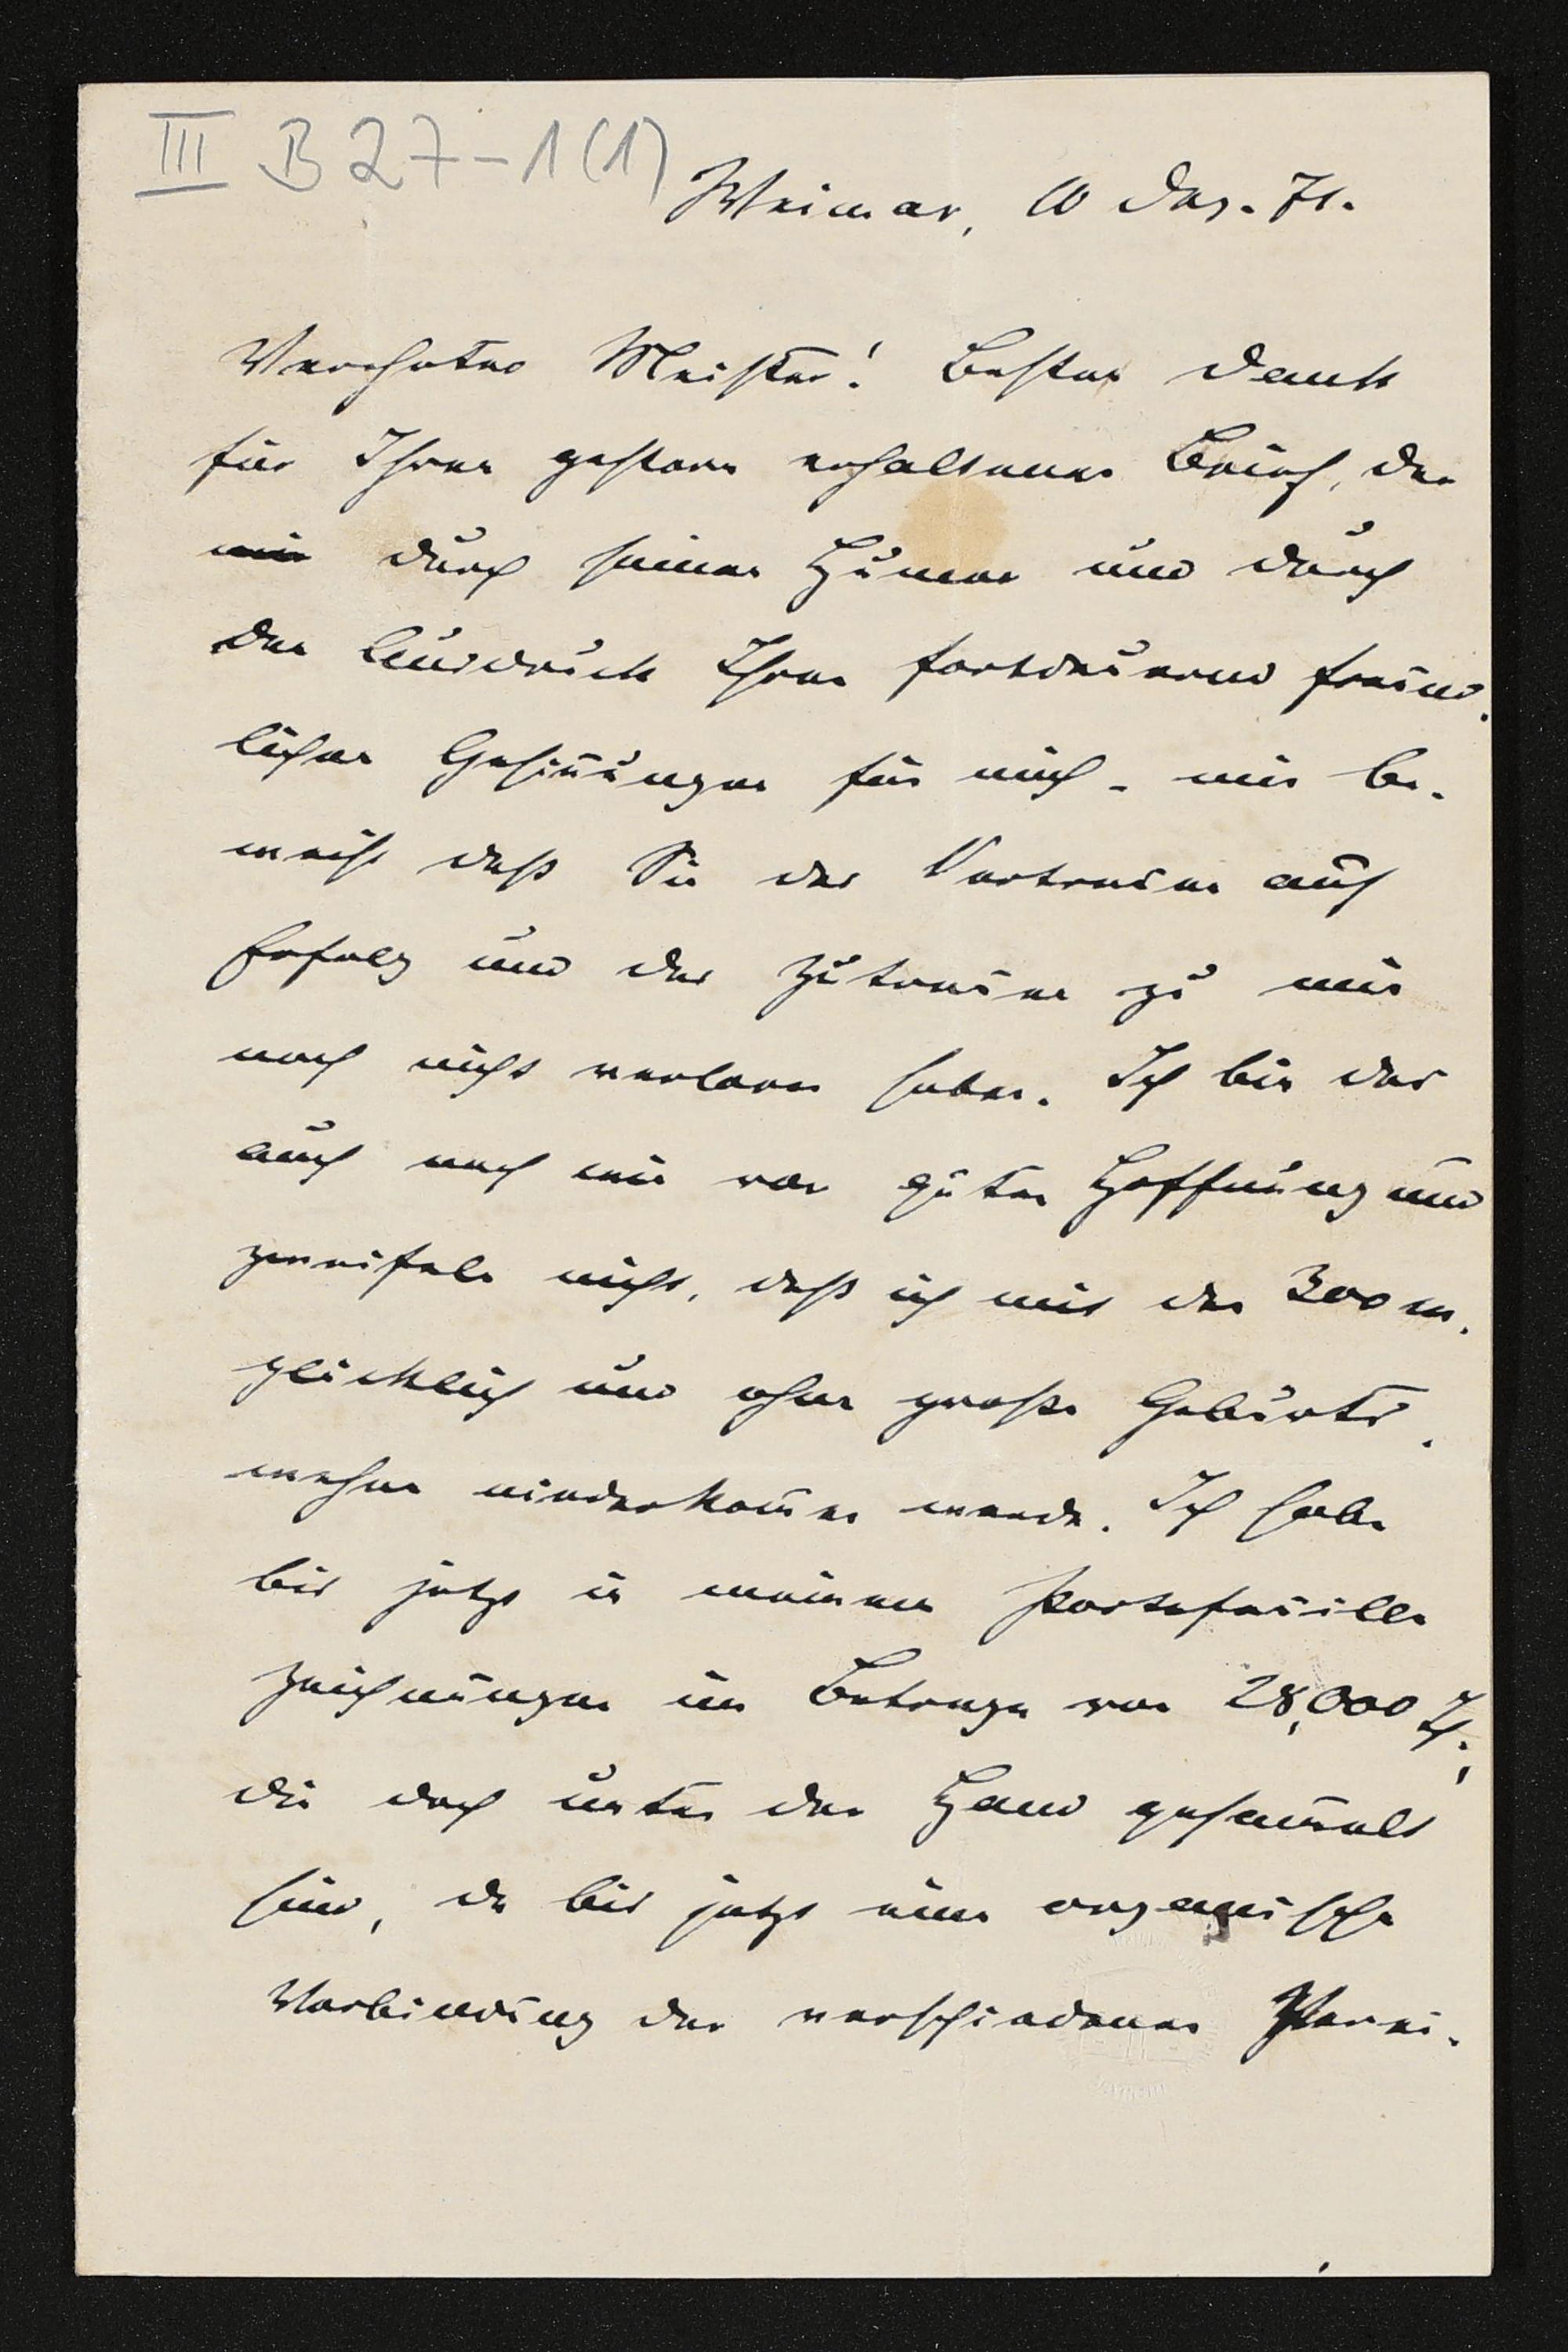 III B 27-1(1)
Weimar, 10 Dez. 71.
Verehrter Meister! Besten Dank
für Ihren gestern erhaltenen Brief, der
mir durch seinen Humor und durch
den Ausdruck Ihrer fortdauernd freund-
lichen Gesinnungen für mich - mir be-
weist daß Sie das Vertrauen auf
Erfolg und das Zutrauen zu mir
noch nicht verloren haben. Ich bin das
auch noch von guter Hoffnung und
zweifele nicht, daß ich mit den 300 m.
glücklich und ohne große Geburts-
wehen niederkommen werde. Ich habe
bis jetzt in meinem Portefeuille
Zeichnungen im Betrage von 28,000 Th.,
die doch unter der Hand gesammelt
sind, da bis jetzt eine organische
Verbindung der verschiedenen Verei-